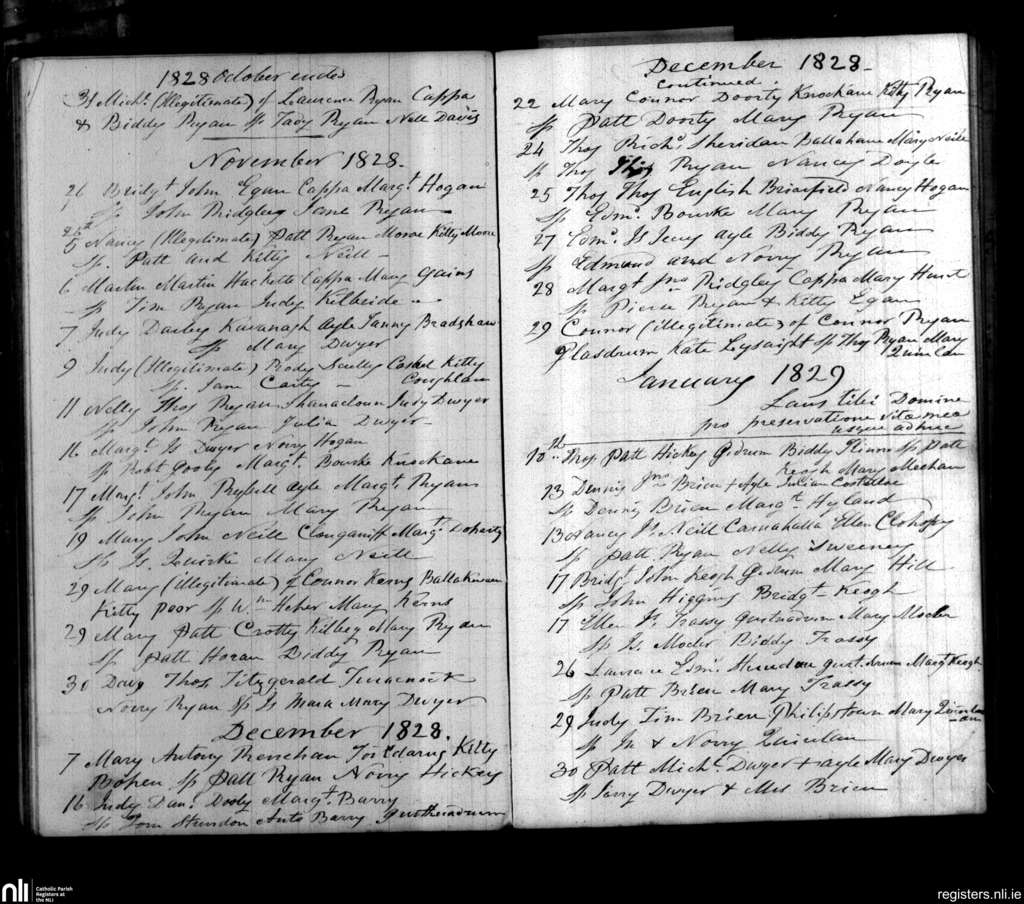 1828 October ended
31 Mich.l (Illegitimate) of Laurence Ryan Cappa
& Biddy Ryan Sp Tady Ryan Nell Davis
November 1828.
26 Bridg.t John Egan Cappa Marg.t Hogan
Sp John Ridgley Jane Ryan
5 Nancy (Illegitimate) Patt Ryan Moroe Kitty Moore
Sp. Patt and Kitty Neill
6 Martin Martin Hackett Cappa Mary Gains
Sp Tim Ryan Judy Kilbride
7 Judy Darley Kavanagh Ayle Fanny Bradshaw
Sp Mary Dwyer
9 Judy (Illegitimate) Rody Scully Cashel Kitty
Coughlan
Sp. Jam
11 Nelly Tho.s Ryan Shanacloun Judy Dwyer
Sp John Ryan Julia Dwyer
16 Marg.t Js Dwyer Norry Hogan
Sp Rob.t Marg.t Bourke Knockane
17 Marg.t John Ayle Marg.t Ryan
Sp John Ryan Mary Ryan
19 Mary John Neill Clonganiff Marg.t Doharty
Sp Js. Quirke Mary Neill
29 Mary (Illegitimate) of Connor Kerns
Kitty Poor Sp W.m Heher Mary Kerns
29 Mary Patt Crotty Kilbeg Mary Ryan
Sp Patt Horan Biddy Ryan
30 Davy Tho.s Fitzgerald
Norry Ryan Sp Js Mara Mary Dwyer
December 1828.
7 Mary Antony Kitty
Bohen Sp Patt Ryan Norry Hickey
16 Judy Dan.l Dooly Marg.t Barry
Sp Tom Barry
December 1828
Continued.
22 Mary Connor Doorty Knockam Kitty Ryan
Sp Patt Doorty Mary Ryan
24 Thos Rich.d Sheridan Ballahane Mary Neile
Sp Thos Ryan Nancy Doyle
25 Thos Thos English Briarfield Nancy Hogan
Sp Edm.d Bourke Mary Ryan
27 Edm.d Js Ayle Biddy Ryan
Sp Edmund and Norry Ryan
28 Marg.t Jno Ridgley Cappa Mary Hurst
Sp Pierce Ryan & Kitty Egan
29 Connor (illegitimate) of Connor Ryan
Glasdrum Kate Lysaight Sp Thos Ryan Mary
Quinlan
January 1829
Laus tibi Domine
pro preservatione vitae meae
usque adhuc
10th Thos. Patt Hickey Gidrum Biddy Flinn Sp Patt
Keogh Mary Meehan
13 Dennis Jno Brien Ayle Julian Costelloe
Sp Denny Brien Marg.t Hyland
13 Nancy Js. Neill Carnahalla Ellen Clohessy
Sp Patt Ryan Nelly Sweeney
17 Bridg.t John Keogh Gidrum Mary Hill
Sp John Higgins Bridg.t Keogh
17 Ellen Js Trassy Mary Mocler
Sp Js. Mocler Biddy Trassy
26 Laurence Edm.d Marg.t Keogh
Sp Patt Brien Mary Trassy
29 Judy Tim Brien Philipstown Mary Quinlan
Sp Jn & Norry Quinlan
30 Patt Mich.l Dwyer Ayle Mary Dwyer
Sp Jerry Dwyer & Mrs Brien
nli
Catholic Parish
Registers at
the NLI
registers.nli.ie